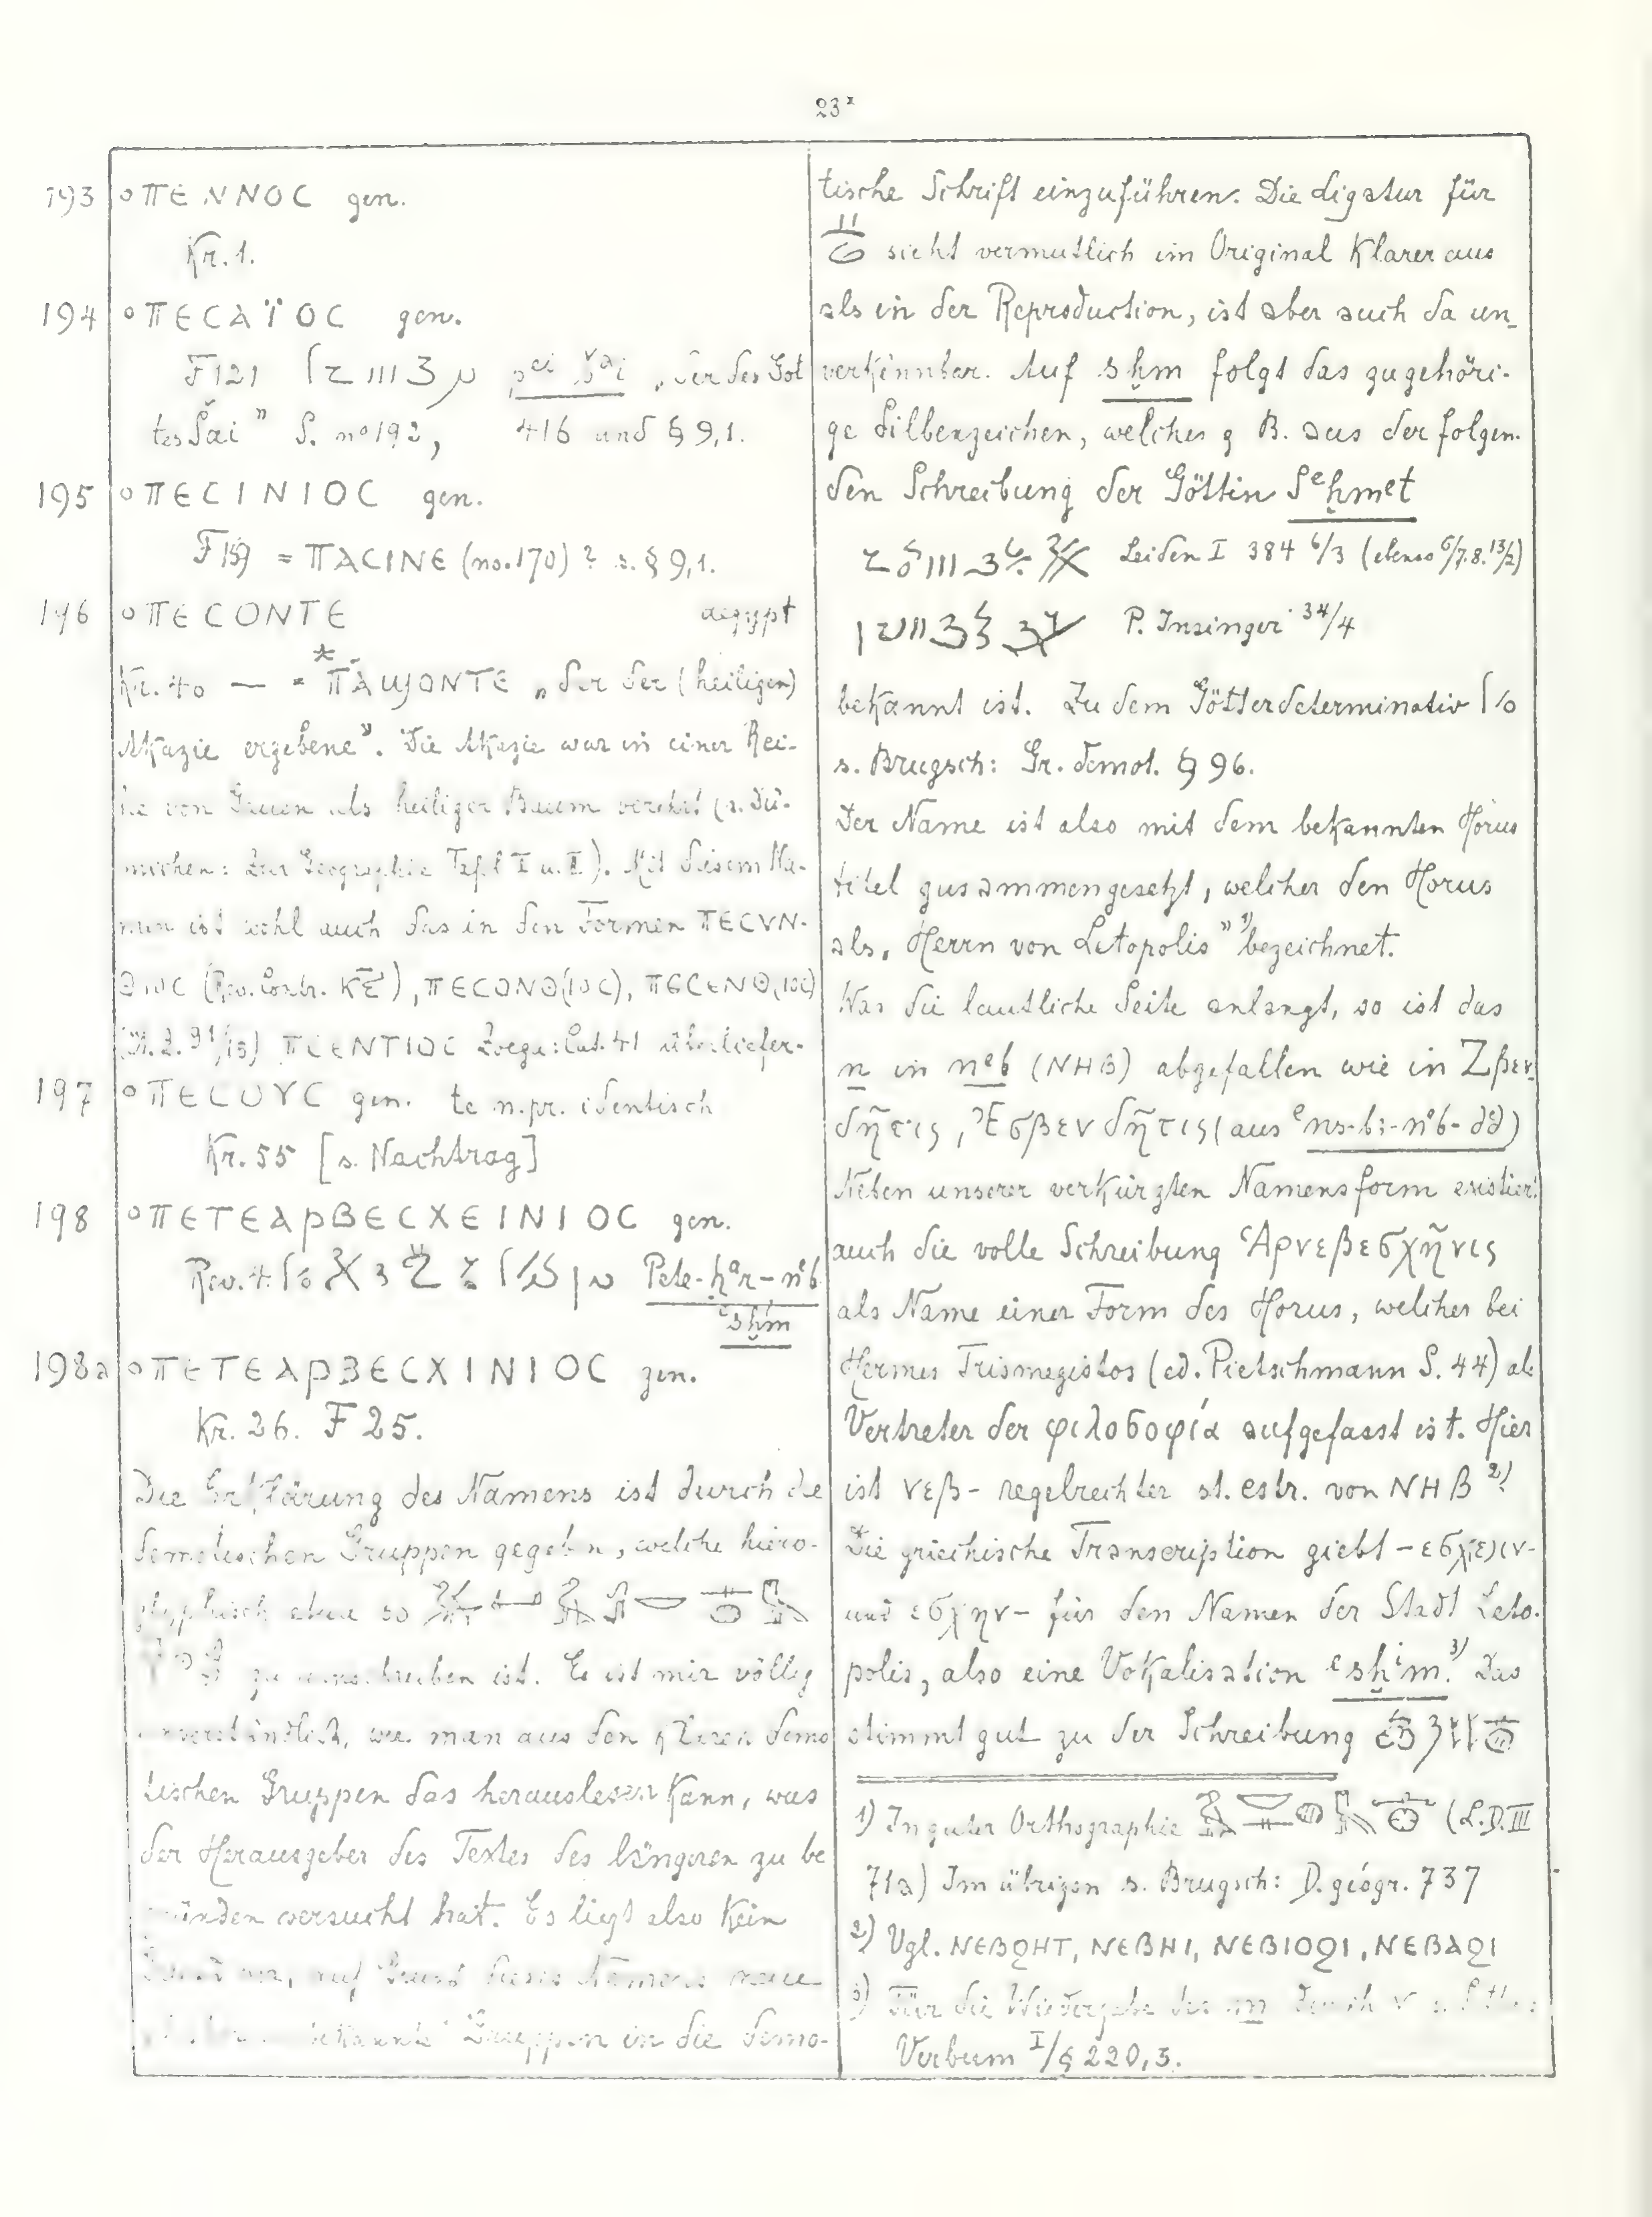 23ˣ
193 ○ ΠΕΝΝΟC gen.
Kr. 1.
194 ○ ΠΕCΑΪΟC gen.
F 121 „der des Got
tes Šai” S. nº 192, 416 und § 9,1.
195 ○ ΠΕCΙΝΙΟC gen.
F 159 = ΠΑCΙΝΕ (no. 170) ? s. § 9,1.
196 ○ ΠΕCΟΝΤΕ aegypt
Kr. 40 — = *ΠΑϢΟΝΤΕ „der der (heiligen)
Akazie ergebene”. Die Akazie war in einer Rei-
he von Gauen als heiliger Baum verehrt (s. Dü-
michen: Zur Geographie Tafel I u. II). Mit diesem Na-
men ist wohl auch das in den Formen ΠΕCΥΝ-
ΘΙΟC (Rev. Contr. ), ΠΕCΟΝΘ(ΙΟC), ΠΕCΕΝΘ(ΙΟC)
ΠCΕΝΤΙΟC Zoega: Cat. 41 überliefer-
197 ○ ΠΕCΟΥC gen. te n.pr. identisch
Kr. 55 [s. Nachtrag]
198 ○ ΠΕΤΕΑΡΒΕCΧΕΙΝΙΟC gen.
Rev. 4. Pete-ḥᵒr-nᵉb
ᵉsḫm
198a ○ ΠΕΤΕΑΡΒΕCΧΙΝΙΟC gen.
Kr. 26. F 25.
Die Erklärung des Namens ist durch die
demotischen Gruppen gegeben, welche hiero-
glyphisch etwa so
zu umschreiben ist. Es ist mir völlig
unverständlich, wie man aus den klaren demo
tischen Gruppen das herauslesen kann, was
der Herausgeber des Textes des längeren zu be
gründen versucht hat. Es liegt also kein
Grund vor, auf Grund dieses Namens neue
Gruppen in die demo-
tische Schrift einzuführen. Die Ligatur für
sieht vermutlich im Original klarer aus
als in der Reproduction, ist aber auch da un-
verkennbar. Auf sḫm folgt das zugehöri-
ge Silbenzeichen, welches z B. aus der folgen-
den Schreibung der Göttin Sᵉḫmet
Leiden I 384 6/3 (ebenso 6/7.8. 13/2)
P. Insinger 34/4
bekannt ist. Zu dem Götterdeterminativ
s. Brugsch: Gr. demot. § 96.
Der Name ist also mit dem bekannten Horus
titel zusammengesetzt, welcher den Horus
als „Herrn von Letopolis” ¹⁾ bezeichnet.
Was die lautliche Seite anlangt, so ist das
n in nᵉb (ΝΗΒ) abgefallen wie in Ζβεν
δῆτις, Ἐσβενδῆτις (aus ᵉns-bi-nᵉb-dd)
Neben unserer verkürzten Namensform existiert
auch die volle Schreibung Ἁρνεβεσχῆνις
als Name einer Form des Horus, welcher bei
Hermes Trismegistos (ed. Pietschmann S. 44) als
Vertreter der φιλοσοφία aufgefasst ist. Hier
ist νεβ- regelrechter st. cstr. von ΝΗΒ ²⁾.
Die griechische Transcription giebt -εσχ(ε)ιν-
und εσχην- für den Namen der Stadt Leto-
polis, also eine Vokalisation ᵉsḫⁱm. ³⁾ Das
stimmt gut zu der Schreibung
1) In guter Orthographie (L.D. III
71a) Im übrigen s. Brugsch: D. géogr. 737
2) Vgl. ΝΕΒϨΗΤ, ΝΕΒΗΙ, ΝΕΒΙΟϨΙ, ΝΕΒΑϨΙ
3) Für die Wiedergabe des m durch ν s. Sethe:
Verbum I/§ 220,3.